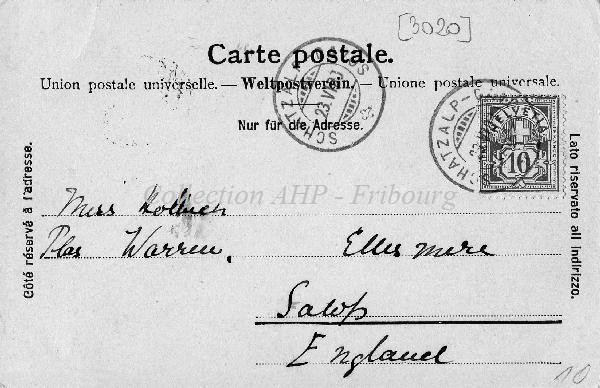 [3020]
Carte postale.
Union postale universelle. — Weltpostverein. — Unione postale universale.
Nur für die Adresse.
SCHATZALP-DAVOS
23.VI.03
SCHATZALP-
HELVETIA
10
Côté réservé à l'adresse.
Lato riservato all indirizzo.
Collection AHP - Fribourg
Miss
Plas Warren, Ellesmere
Salop
England
10